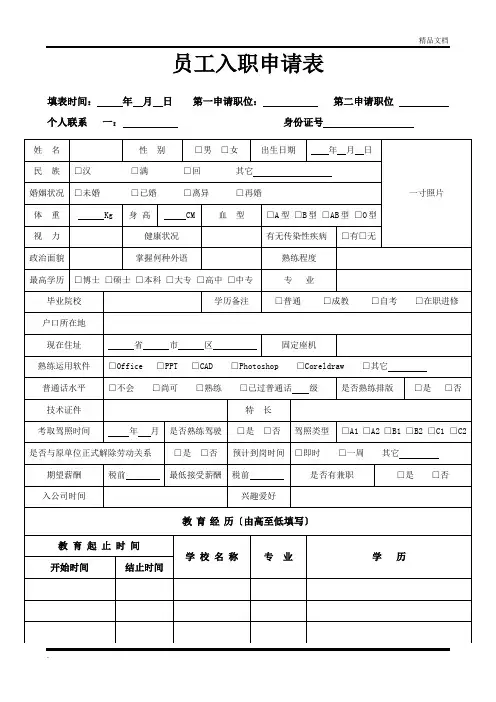 精品文档
员工入职申请表
填表时间：____年__月__日 第一申请职位：________ 第二申请职位________
个人联系 一：________ 身份证号____________
姓 名 性 别 □男 □女 出生日期 ___年__月__日 一寸照片
民 族 □汉 □满 □回 其它____________
婚姻状况 □未婚 □已婚 □离异 □再婚
体 重 ____Kg 身 高 ____CM 血 型 □A型 □B型 □AB型 □O型
视 力 健康状况 有无传染性疾病 □有□无
政治面貌 掌握何种外语 熟练程度
最高学历 □博士 □硕士 □本科 □大专 □高中 □中专 专 业
毕业院校 学历备注 □普通 □成教 □自考 □在职进修
户口所在地
现在住址 ____省____市____区______ 固定座机
熟练运用软件 □Office □PPT □CAD □Photoshop □Coreldraw □其它______
普通话水平 □不会 □尚可 □熟练 □已过普通话___级 是否熟练排版 □是 □否
技术证件 特 长
考取驾照时间 ___年__月 是否熟练驾驶 □是 □否 驾照类型 □A1 □A2 □B1 □B2 □C1 □C2
是否与原单位正式解除劳动关系 □是 □否 预计到岗时间 □即时 □一周 其它______
期望薪酬 税前____ 最低接受薪酬 税前____ 是否有兼职 □是 □否
入公司时间 兴趣爱好
教 育 经 历〔由高至低填写〕
教 育 起 止 时 间 学 校 名 称 专 业 学 历
开始时间 结止时间
.